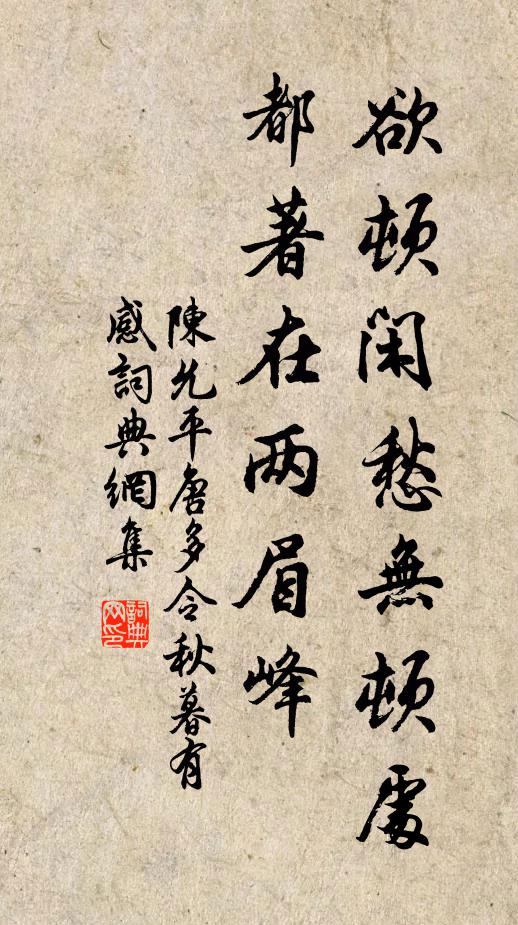 欲頓閑愁無頓處
都著在两眉峰
陳允平唐多令秋暮有
感詞典網集
詞典网印